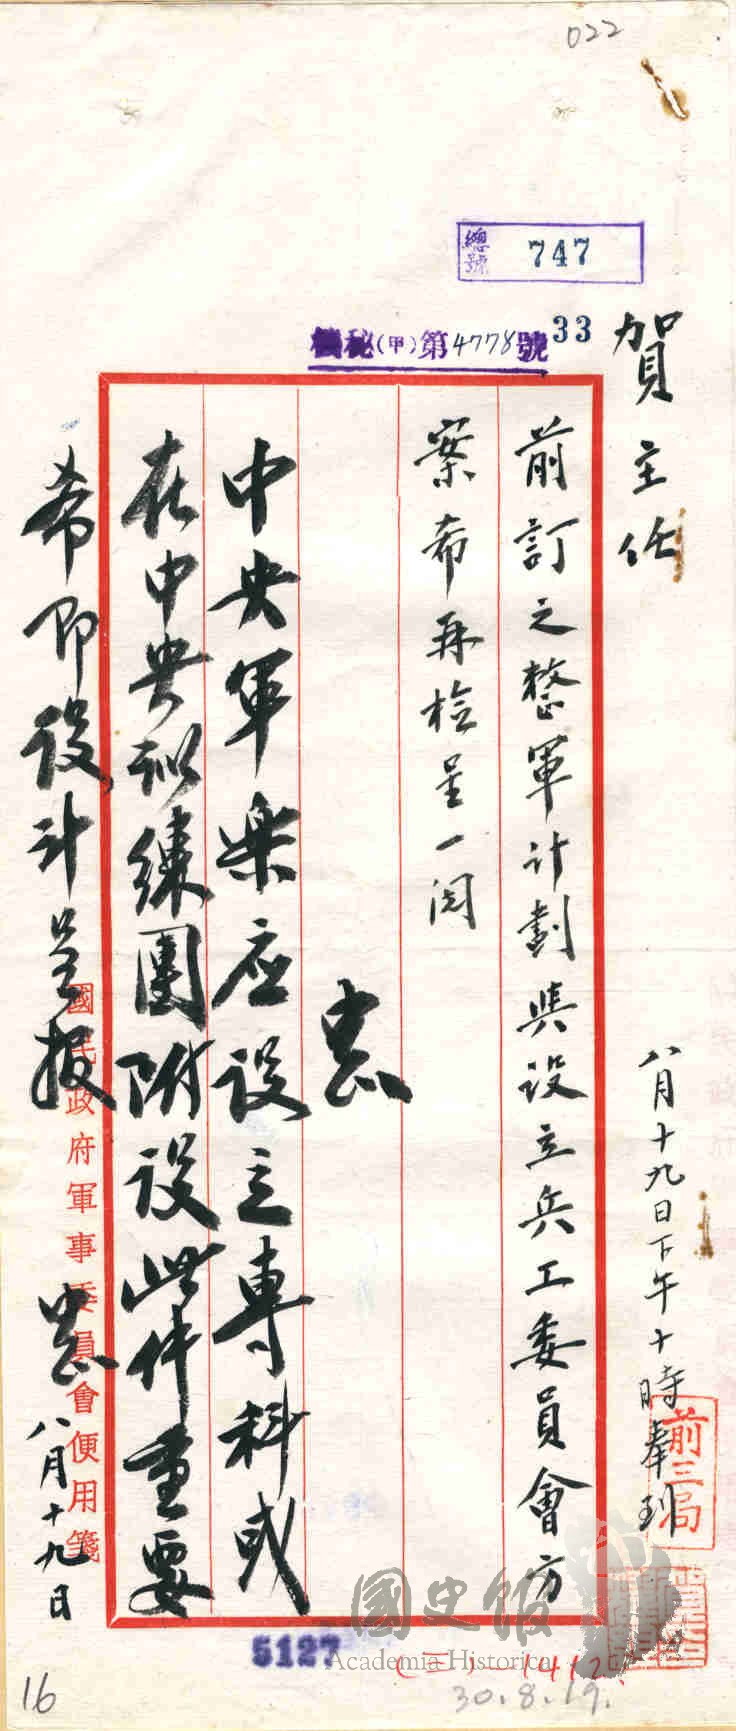 022
總號 747
機秘(甲)第4778號 33
賀主任
八月十九日下午十時奉到
前三局
前訂之整軍計劃與設立兵工委員會方
案希再檢呈一閱
中
中央軍樂应設立專科或
在中央訓練團附設此件重要
希即設計呈报
中 八月十九日
國民政府軍事委員會便用箋
5127
國史館
Academia Historica
(三)-1412
30.8.19.
16